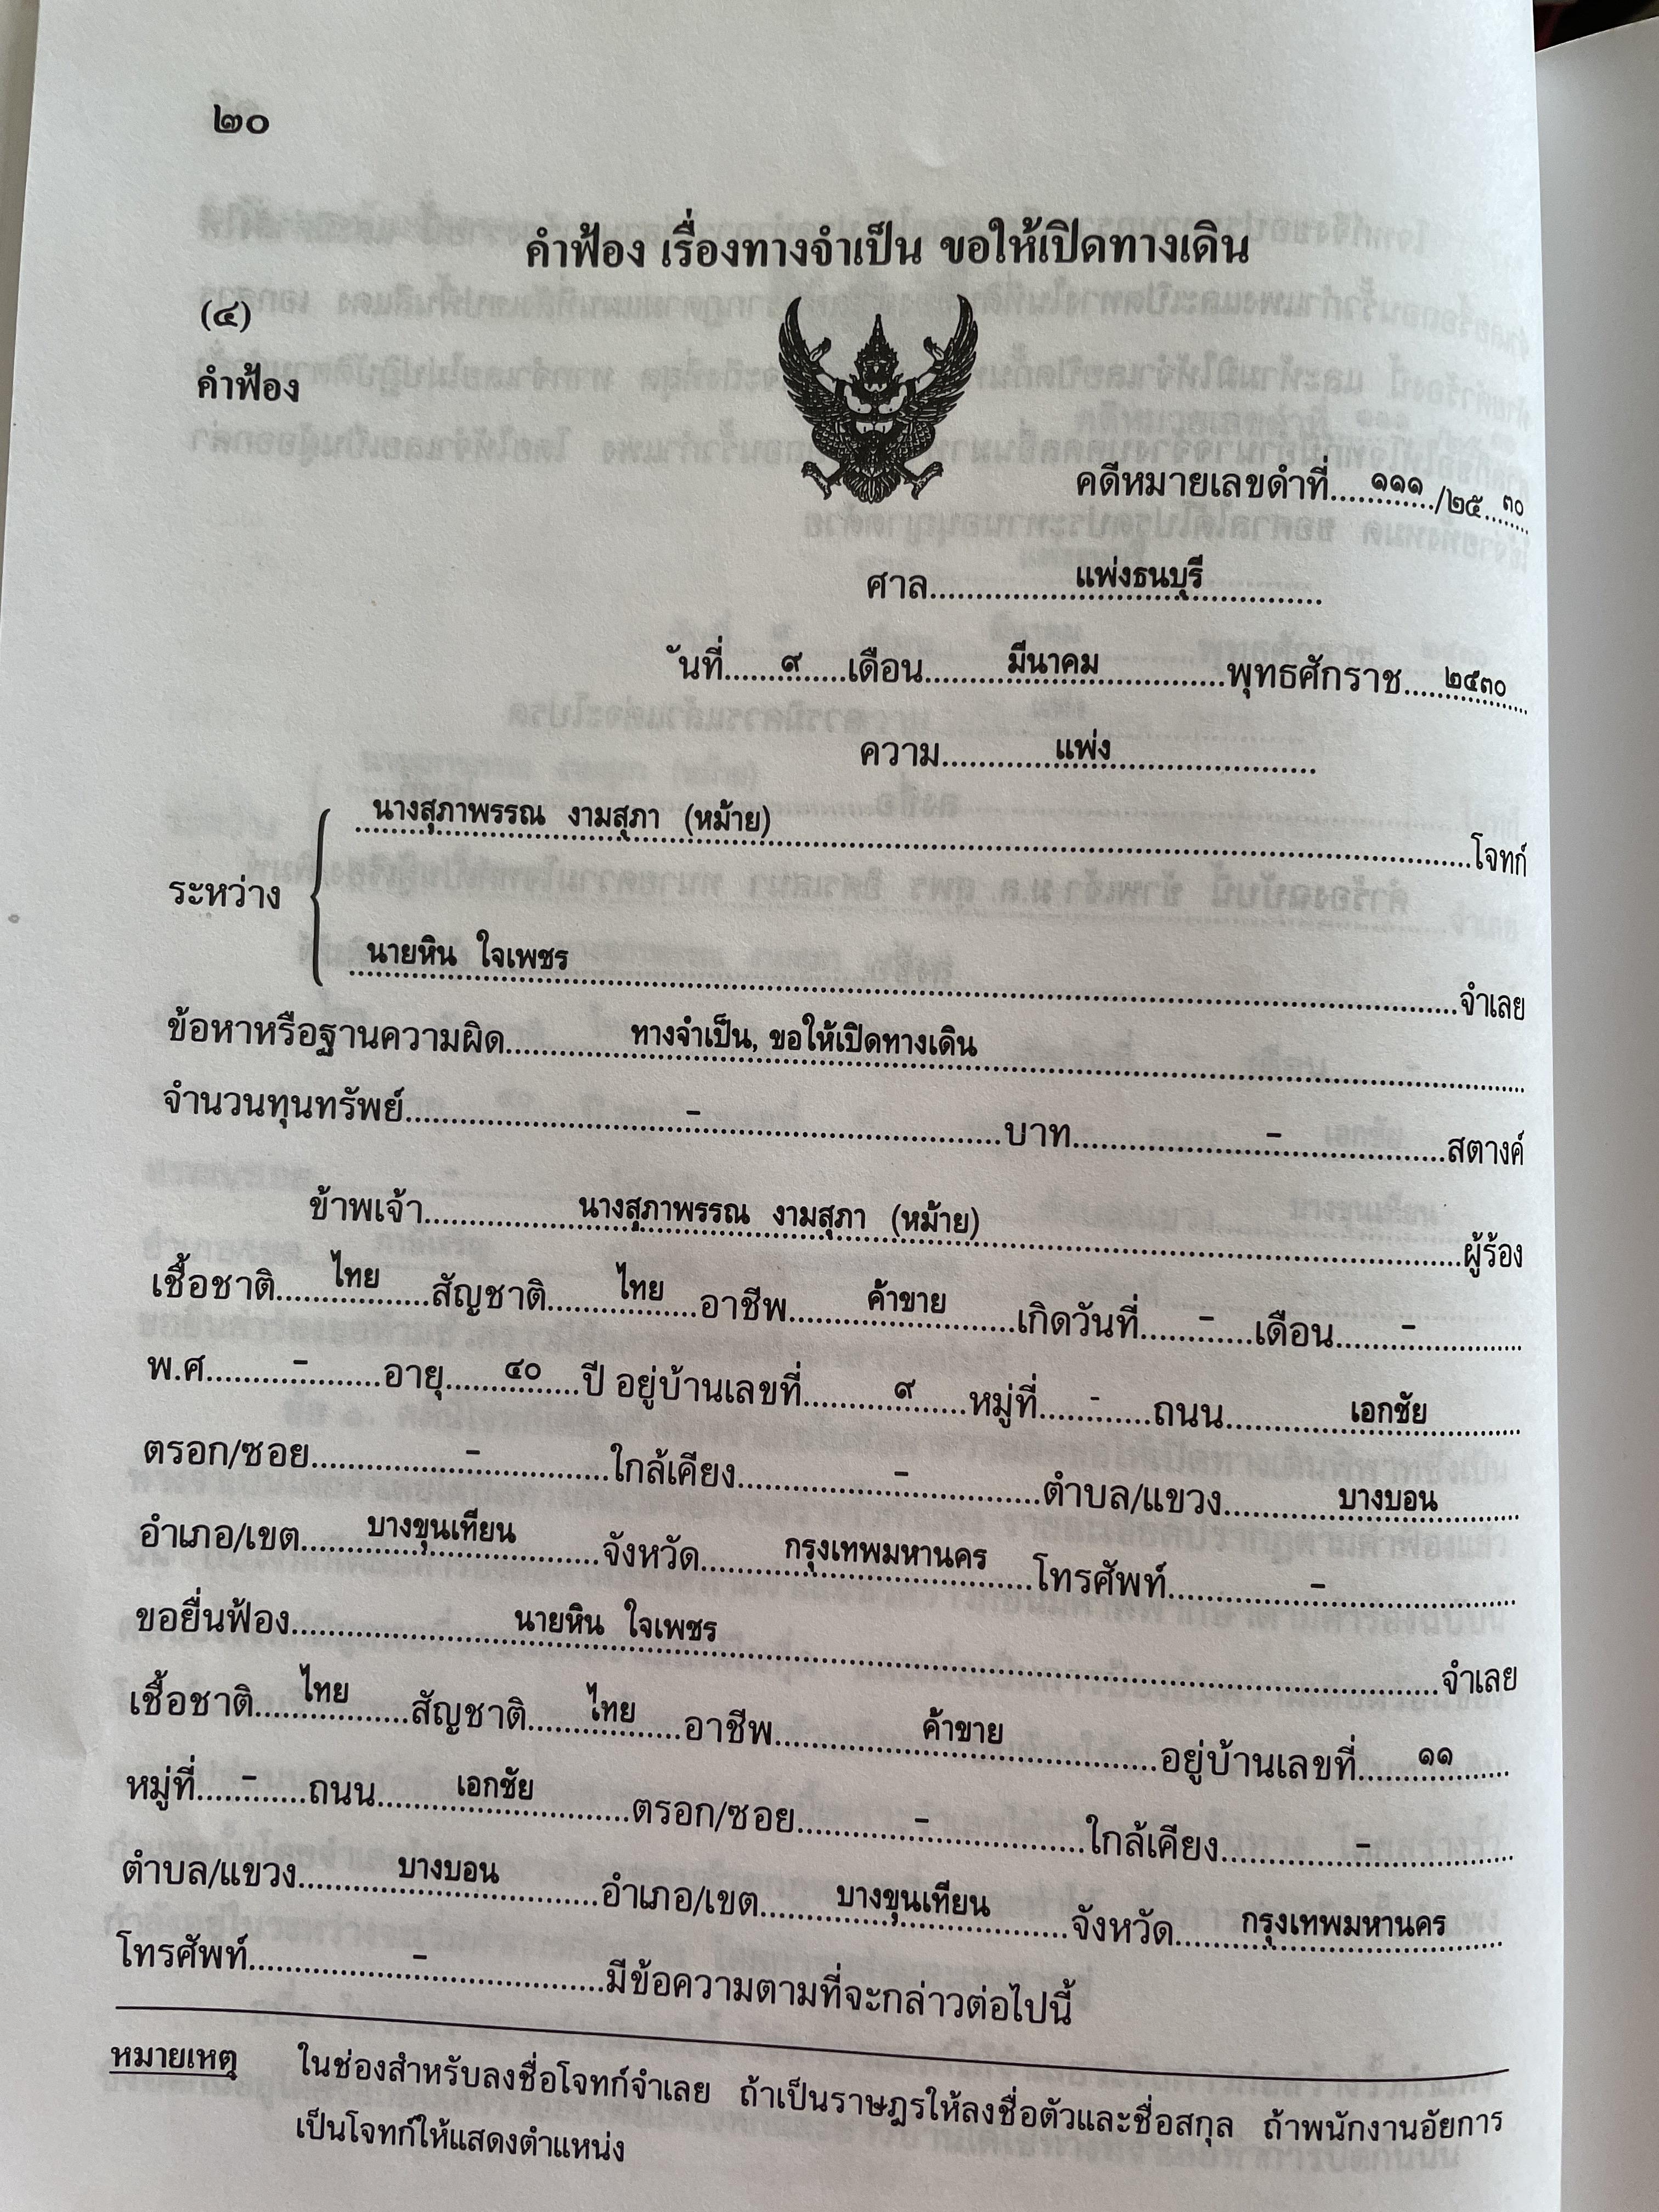 ๒๐
คำฟ้อง เรื่องทางจำเป็น ขอให้เปิดทางเดิน
(๔)
คำฟ้อง
คดีหมายเลขดำที่....๑๑๑..../๒๕..๓๐
ศาล....แพ่งธนบุรี....
วันที่....๙....เดือน....มีนาคม....พุทธศักราช....๒๕๓๐
ความ....แพ่ง....
นางสุภาพรรณ งามสุภา (หม้าย)....โจทก์
ระหว่าง
นายหิน ใจเพชร....จำเลย
ข้อหาหรือฐานความผิด....ทางจำเป็น, ขอให้เปิดทางเดิน....
จำนวนทุนทรัพย์....–....บาท....–....สตางค์
ข้าพเจ้า....นางสุภาพรรณ งามสุภา (หม้าย)....ผู้ร้อง
เชื้อชาติ....ไทย....สัญชาติ....ไทย....อาชีพ....ค้าขาย....เกิดวันที่....–....เดือน....–....
พ.ศ....–....อายุ....๔๐....ปี อยู่บ้านเลขที่....๙....หมู่ที่....-....ถนน....เอกชัย....
ตรอก/ซอย....–....ใกล้เคียง....–....ตำบล/แขวง....บางบอน....
อำเภอ/เขต....บางขุนเทียน....จังหวัด....กรุงเทพมหานคร....โทรศัพท์....–....
ขอยื่นฟ้อง....นายหิน ใจเพชร....จำเลย
เชื้อชาติ....ไทย....สัญชาติ....ไทย....อาชีพ....ค้าขาย....อยู่บ้านเลขที่....๑๑....
หมู่ที่....–....ถนน....เอกชัย....ตรอก/ซอย....–....ใกล้เคียง....–....
ตำบล/แขวง....บางบอน....อำเภอ/เขต....บางขุนเทียน....จังหวัด....กรุงเทพมหานคร....
โทรศัพท์....–....มีข้อความตามที่จะกล่าวต่อไปนี้
หมายเหตุ ในช่องสำหรับลงชื่อโจทก์จำเลย ถ้าเป็นราษฎรให้ลงชื่อตัวและชื่อสกุล ถ้าพนักงานอัยการ
เป็นโจทก์ให้แสดงตำแหน่ง